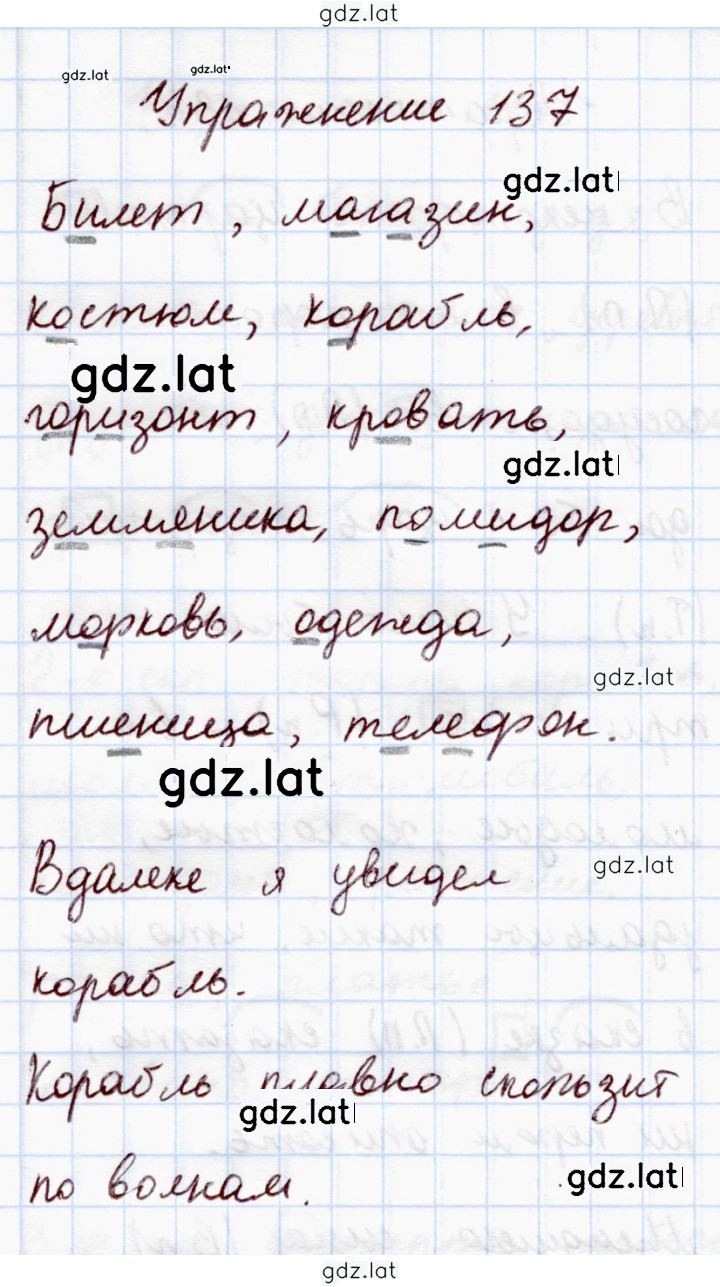 gdz.lat
gdz.lat gdz.lat
Упражнение 137
gdz.lat
Билет, магазин,
костюм, корабль,
gdz.lat
горизонт, кровать,
gdz.lat
земляника, помидор,
морковь, одежда,
gdz.lat
пшеница, телефон.
gdz.lat
Вдалеке я увидел
gdz.lat
корабль.
Корабль плавно скользит
gdz.lat
по волнам.
gdz.lat
gdz.lat